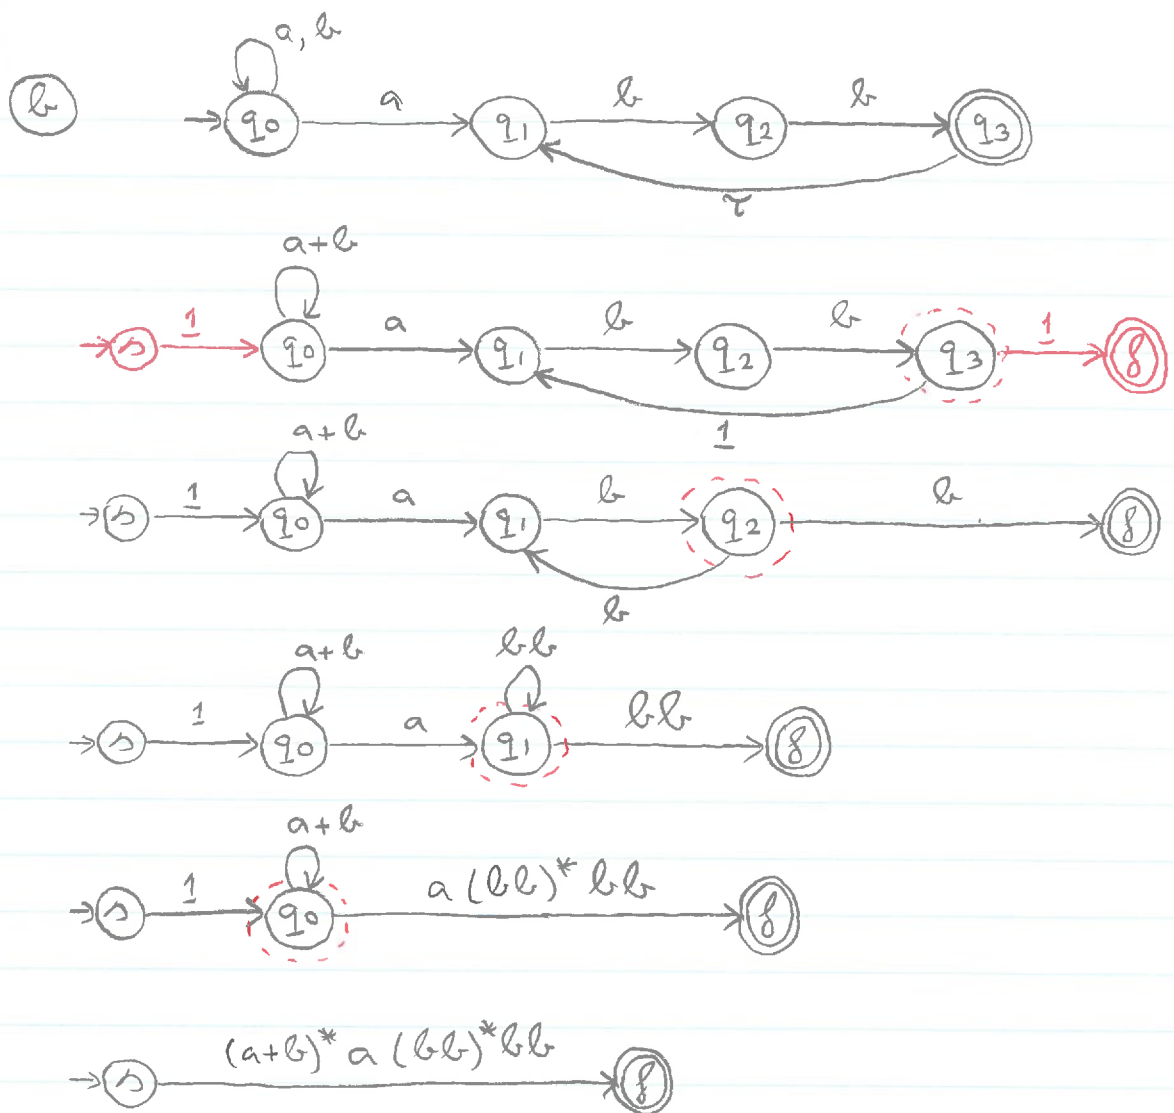 b
a, b
q0 a q1 b q2 b q3
τ
a+b
s 1 q0 a q1 b q2 b q3 1 f
1
a+b
s 1 q0 a q1 b q2 b f
b
a+b bb
s 1 q0 a q1 bb f
a+b
s 1 q0 a (bb)* bb f
(a+b)* a (bb)* bb
s f